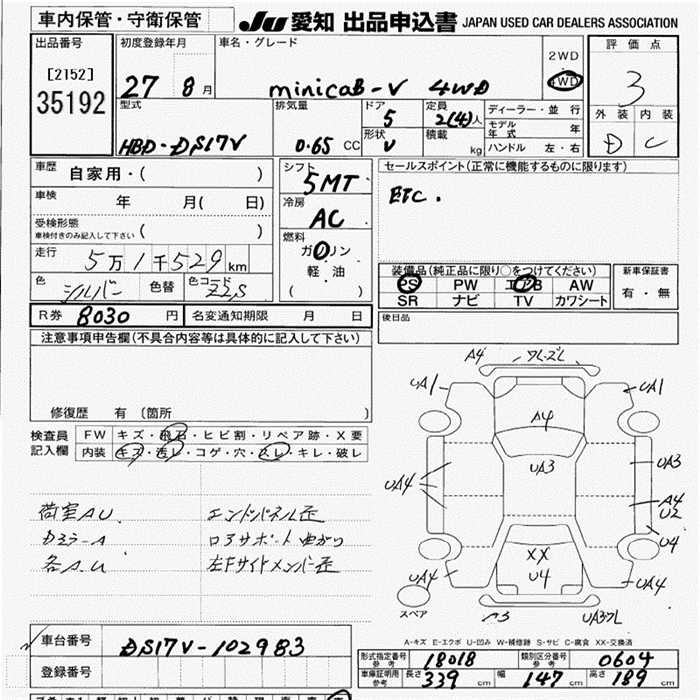 車内保管・守衛保管
JU 愛知 出品申込書 JAPAN USED CAR DEALERS ASSOCIATION
出品番号
[2152]
35192
初度登録年月
27 8 月
車名・グレード
minicaB-V 4WD
2WD
4WD
評価点
3
外装 内装
D C
型式
HBD-DS17V
排気量
0.65 CC
ドア
5
形状
V
定員
2(4)人
積載
kg
ディーラー・並行
モデル年式 年
ハンドル 左・右
車歴 自家用・( )
車検 年 月( 日)
受検形態
車検付きのみ記入して下さい ( )
走行 5万1千529km
色 シルバー 色替 色コード ZZS
シフト
5MT
冷房
AC
燃料
ガソリン
軽・油
( )
セールスポイント(正常に機能するものに限ります)
ETC.
装備品(純正品に限り○をつけてください)
PS PW エアB AW
SR ナビ TV カワシート
新車保証書
有・無
後日品
R券 8030 円 名変通知期限 月 日
注意事項申告欄(不具合内容等は具体的に記入して下さい)
修復歴 有 (箇所 )
検査員記入欄
FW キズ・飛石・ヒビ割・リペア跡・X要
内装 キズ・汚レ・コゲ・穴・スレ・キレ・破レ
荷室AU エンドパネル歪
各AU 左Fサイドメンバー歪
A4 ワレズレ
UA1 UA1
A4
UA3 UA3
UA4
A4
U2
U4
XX
U4
UA4 UA4
スペア
A-キズ E-エクボ U-凹み W-補修跡 S-サビ C-腐食 XX-交換済
車台番号 DS17V-102983
登録番号
形式指定番号 参考 18018 類別区分番号 参考 0604
車庫証明用 参考 長さ 339 cm 幅 147 cm 高さ 189 cm